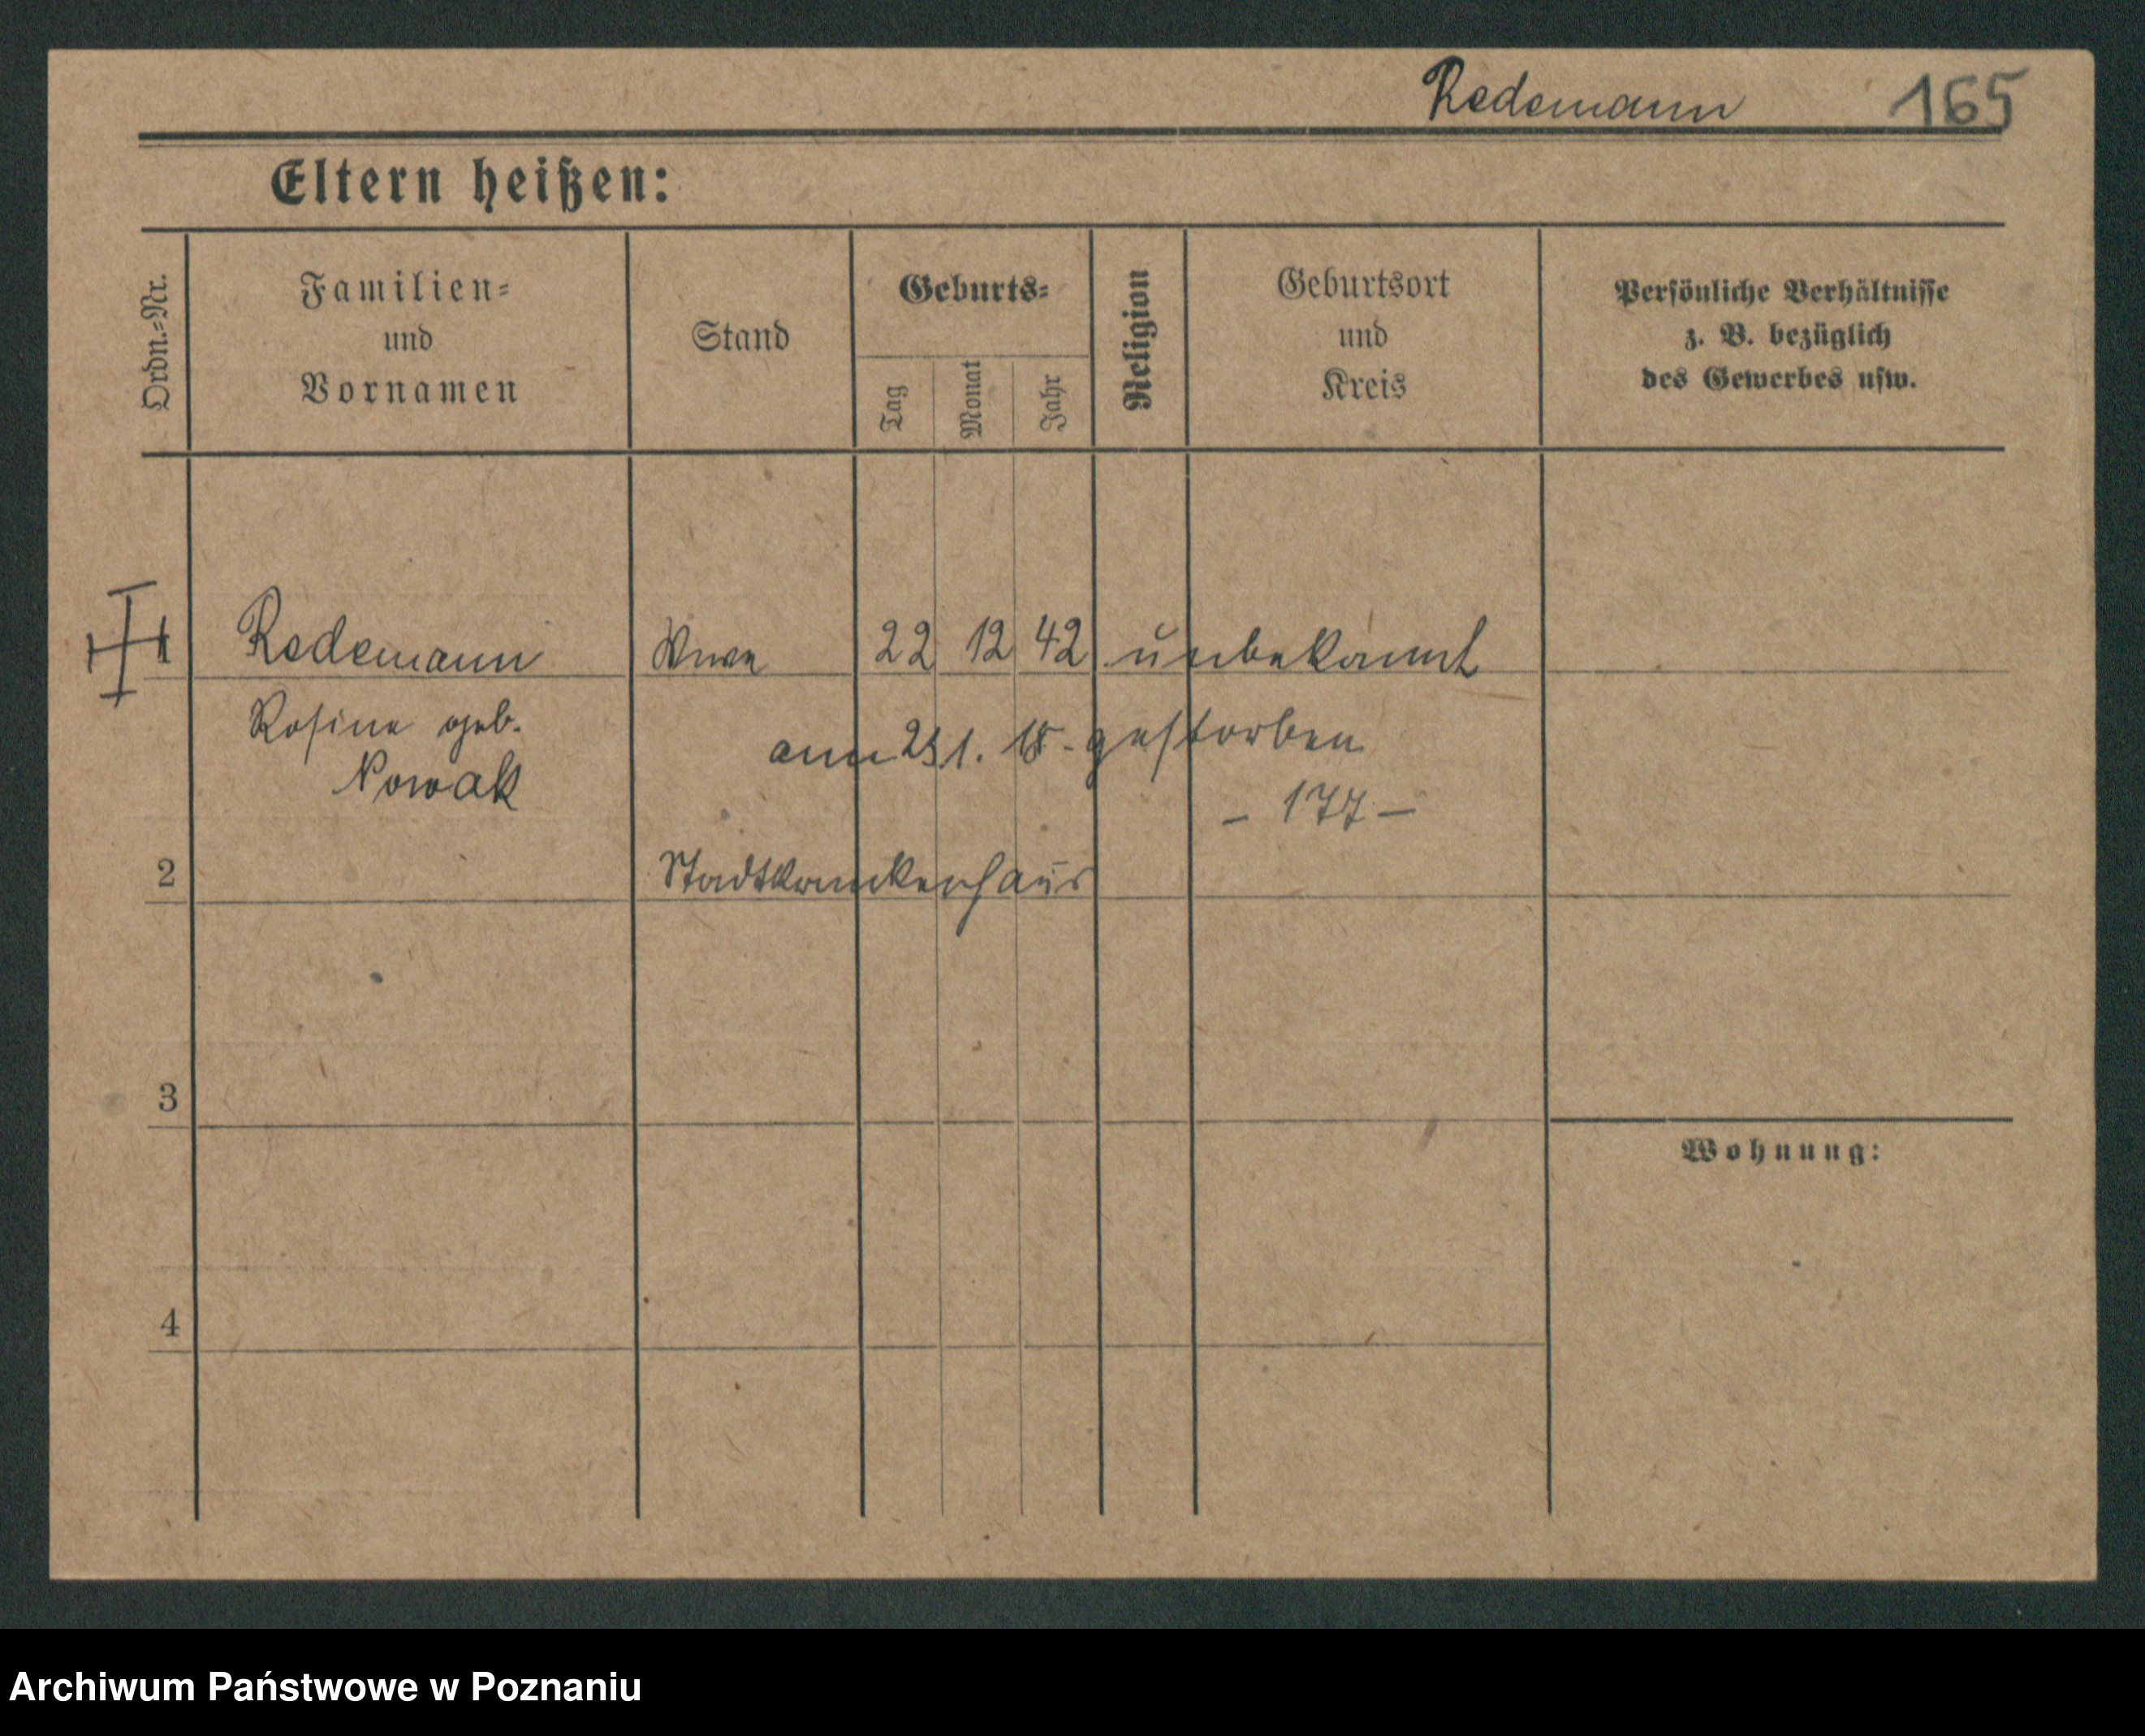 Redemann 165
Eltern heißen:
Ordn.-Nr.
Familien-
und
Vornamen
Stand
Geburts-
Tag
Monat
Jahr
Religion
Geburtsort
und
Kreis
Persönliche Verhältnisse
z. B. bezüglich
des Gewerbes usw.
1 Redemann Wwe 22 12 42 unbekannt
Rosine geb.
Nowak
am 23 1. 18 - gestorben
- 177 -
2 Stadtkrankenhaus
3
Wohnung:
4
Archiwum Państwowe w Poznaniu